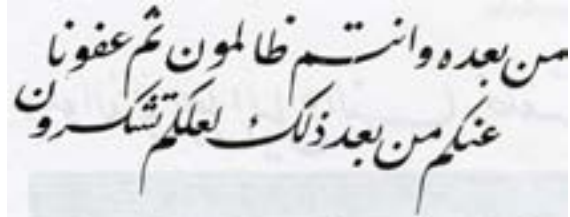 من بعده وانتم ظالمون ثم عفونا
عنكم من بعد ذلك لعلكم تشكرون